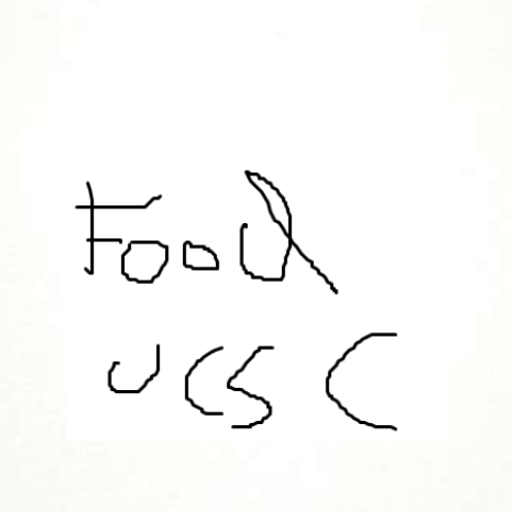 Food
UCSC